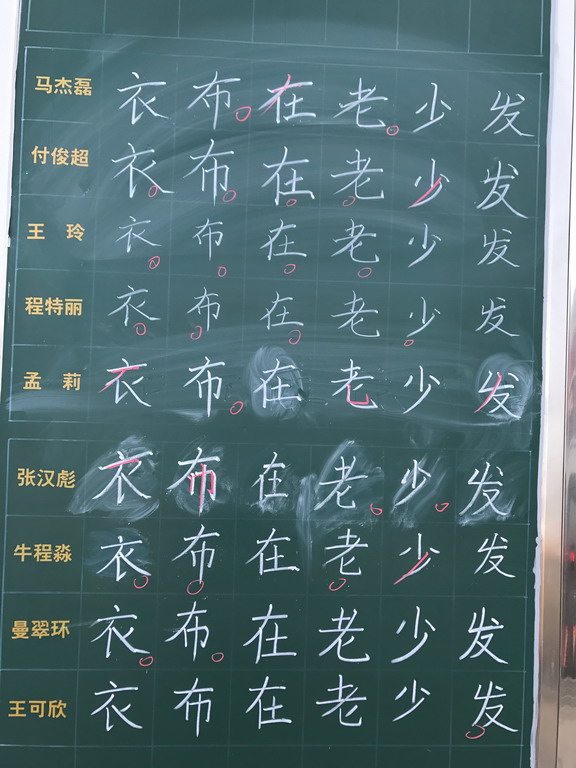 马杰磊 衣 布 在 老 少 发
付俊超 衣 布 在 老 少 发
王 玲 衣 布 在 老 少 发
程特丽 衣 布 在 老 少 发
孟 莉 衣 布 在 老 少 发
张汉彪 衣 布 在 老 少 发
牛程淼 衣 布 在 老 少 发
曼翠环 衣 布 在 老 少 发
王可欣 衣 布 在 老 少 发